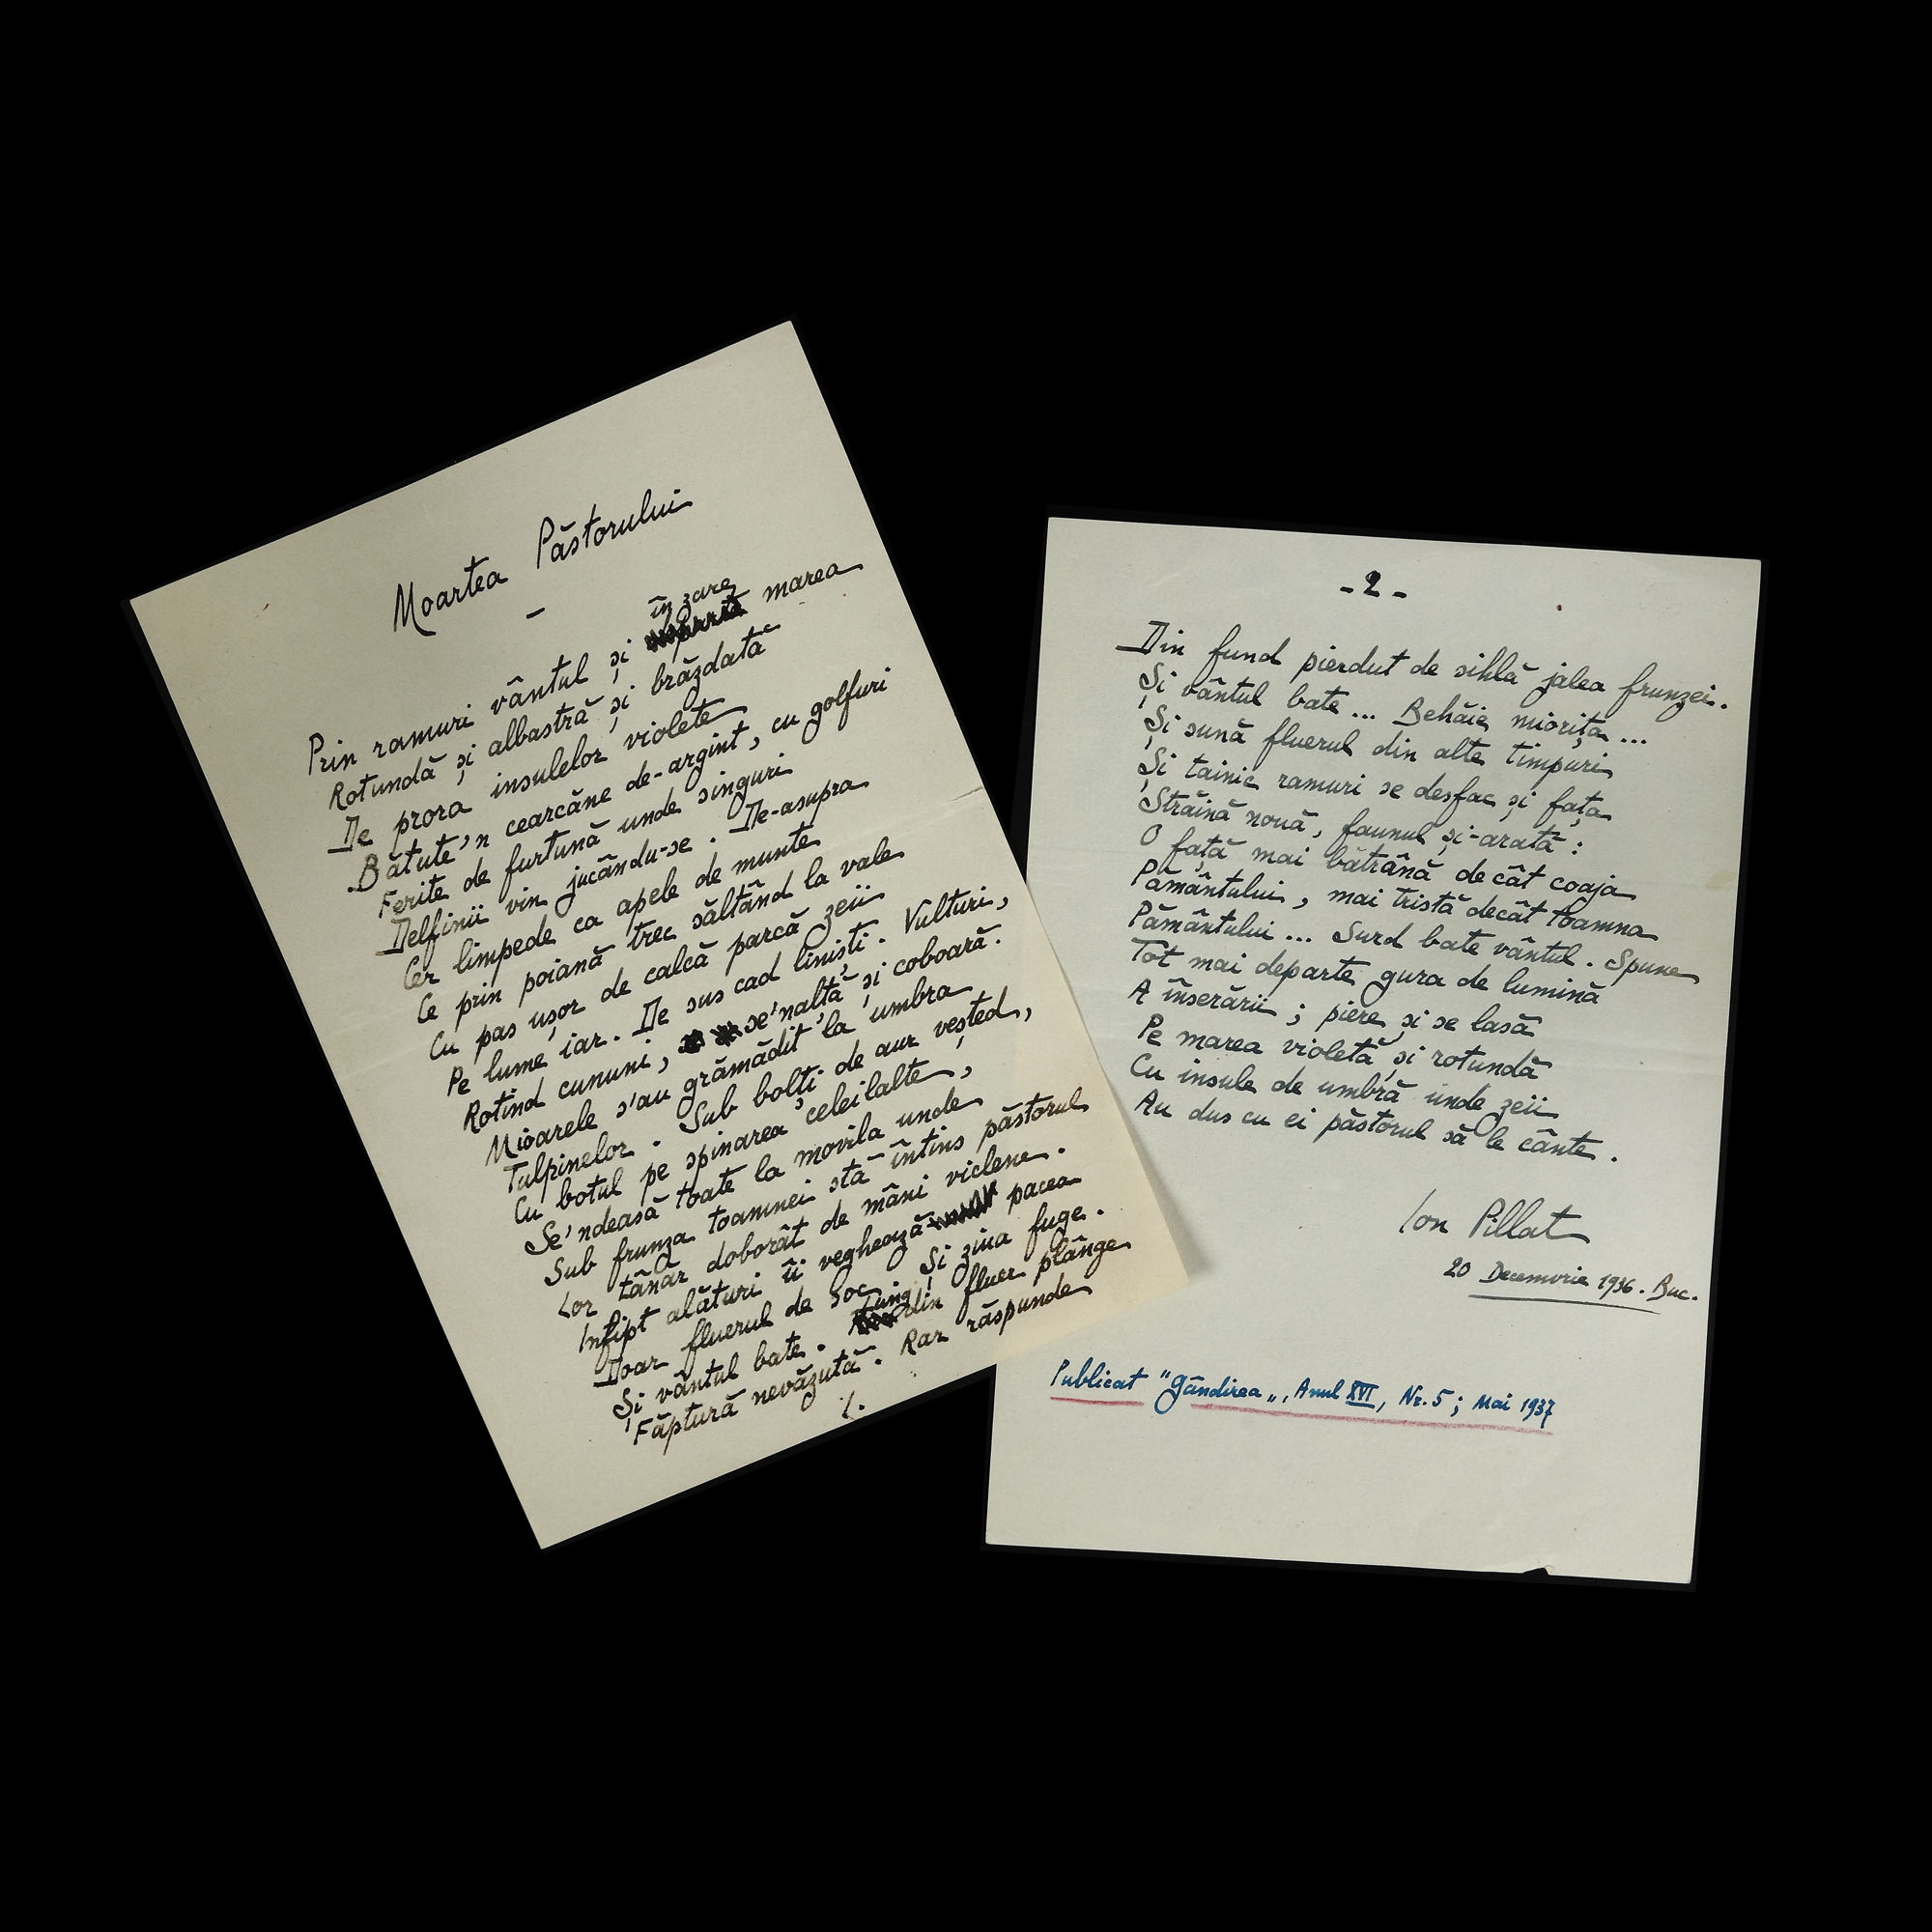 Moartea Păstorului
–
Prin ramuri vântul și în zare marea
Rotundă și albastră și brăzdată
De prora insulelor violete
Bătute'n cearcăne de-argint, cu golfuri
Ferite de furtună unde singuri
Delfinii vin jucându-se. De-asupra
Cer limpede ca apele de munte
Ce prin poiană trec săltând la vale
Cu pas ușor de calcă parcă zeii
Pe lume iar. De sus cad liniști. Vulturi,
Rotind cununi, se'nalță și coboară.
Mioarele s'au grămădit la umbra
Tulpinelor. Sub bolți de aur veșted,
Cu botul pe spinarea celeilalte,
Se'ndeasă toate la movila unde
Sub frunza toamnei stă întins păstorul
Lor tânăr doborât de mâni viclene.
Infipt alături îi veghează pacea
Doar fluerul de soc. Și ziua fuge.
Și vântul bate. Lung din fluer plânge
Făptură nevăzută. Rar răspunde
./.
- 2 -
Din fund pierdut de sihlă jalea frunzei.
Și vântul bate... Behăie miorița...
Și sună fluerul din alte timpuri
Și tainic ramuri se desfac și fața
Străină nouă, faunul și-arată:
O față mai bătrână decât coaja
Pământului, mai tristă decât toamna
Pământului... Surd bate vântul. Spune
Tot mai departe gura de lumină
A înserării; piere și se lasă
Pe marea violetă și rotundă
Cu insule de umbră unde zeii
Au dus cu ei păstorul să le cânte.
Ion Pillat
20 Decemvrie 1936. Buc.
Publicat "Gândirea„, Anul XVI, Nr. 5; Mai 1937